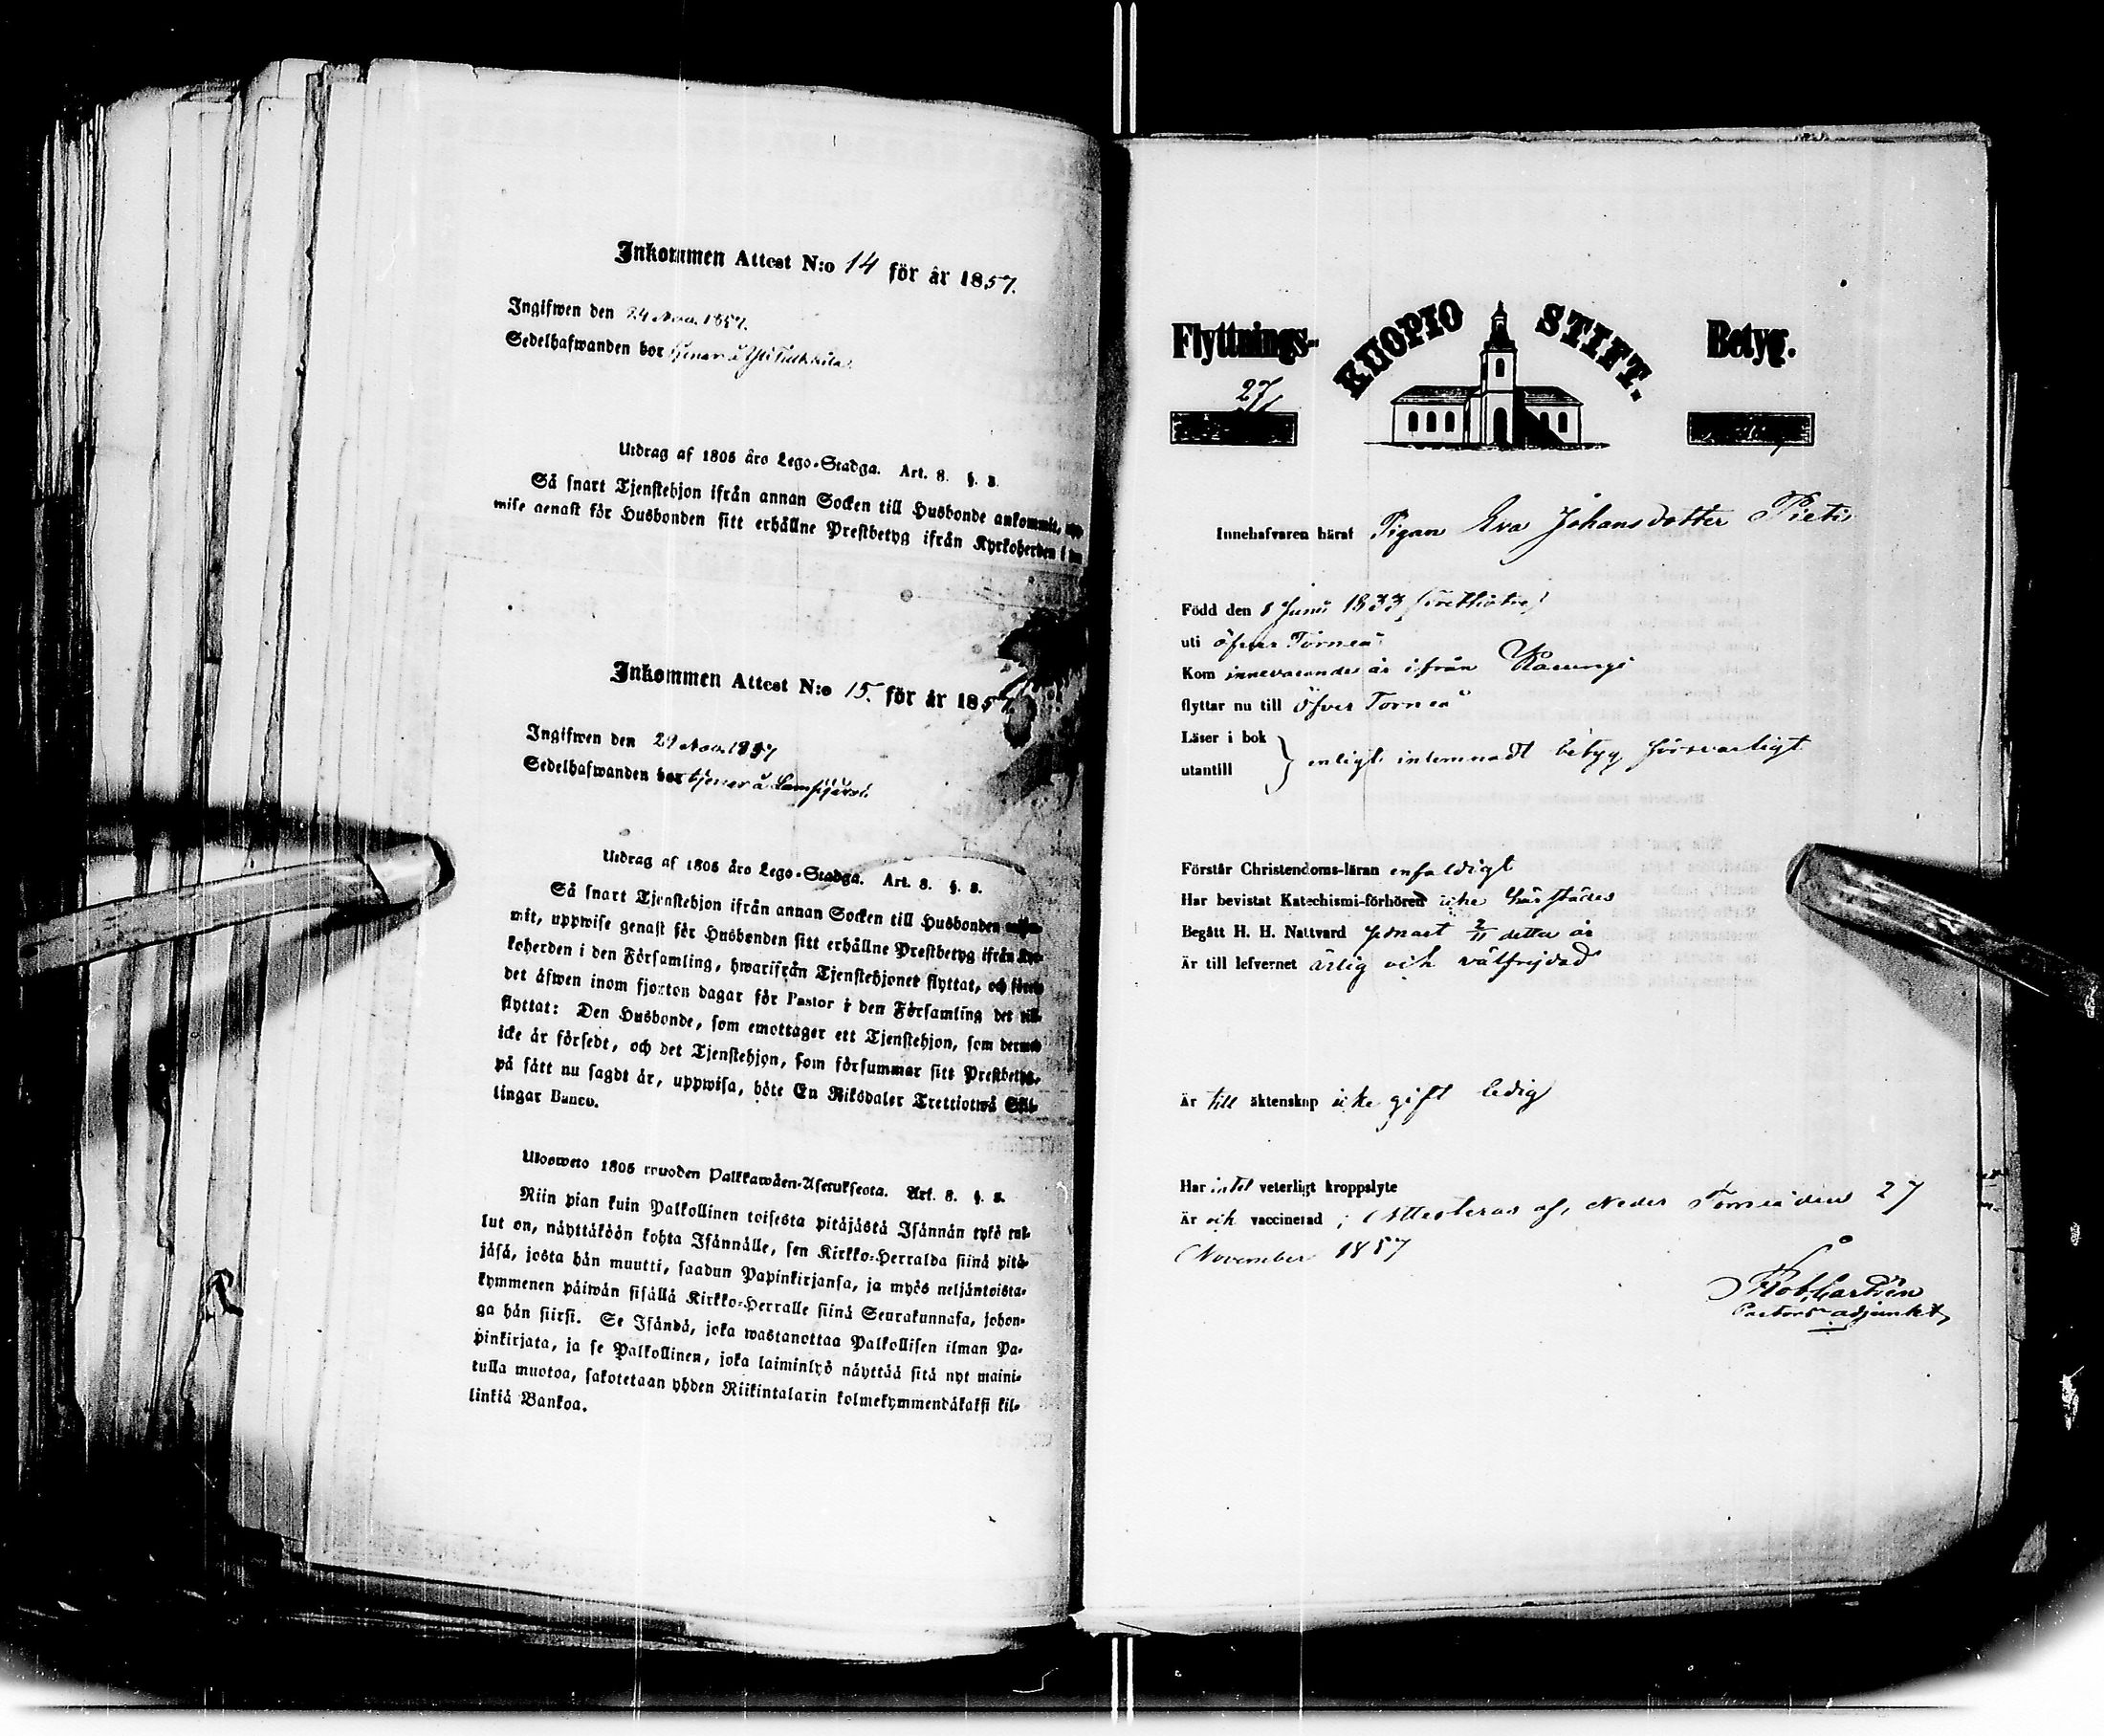 Inkommen Attest N:o 14 för år 1857.
Ingifwen den 24 Nov. 1857.
Sedelhafwanden bor tjenar å Yli
Utdrag af 1805 års Lego-Stadga. Art. 8. §. 3.
Så snart Tjenstehjon ifrån annan Socken till Husbonde ankommit, upp-
wise genast för Husbonden sitt erhållne Prestbetyg ifrån Kyrkoherden i den
Inkommen Attest N:o 15. för år 1857.
Ingifwen den 29 Nov. 1857
Sedelhafwanden bor tjenar å
Utdrag af 1805 års Lego-Stadga. Art. 8. §. 3.
Så snart Tjenstehjon ifrån annan Socken till Husbonden ankom-
mit, uppwise genast för Husbonden sitt erhållne Prestbetyg ifrån Kyr-
koherden i den Församling, hwarifrån Tjenstehjonet flyttat, och förete
det äfwen inom fjorton dagar för Pastor i den Församling det till-
flyttat: Den Husbonde, som emottager ett Tjenstehjon, som dermed
icke är försedt, och det Tjenstehjon, som försummar sitt Prestbetyg,
på sätt nu sagdt är, uppwisa, böte En Riksdaler Trettiotwå Skil-
lingar Banco.
Ulosweto 1805 wuoden Palkkawäen-Asetuksesta. Art. 8. §. 3.
Niin pian kuin Palkollinen toisesta pitäjästä Isännän tykö tul-
lut on, näyttäköön kohta Isännälle, sen Kirkko-Herralda siinä pitä-
jäsä, josta hän muutti, saadun Papinkirjansa, ja myös neljäntoista-
kymmenen päiwän sisällä Kirkko-Herralle siinä Seurakunnasa, johon-
ga hän siirsi. Se Isändä, joka wastanottaa Palkollisen ilman Pa-
pinkirjata, ja se Palkollinen, joka laiminlyö näyttää sitä nyt maini-
tulla muotoa, sakotetaan yhden Riikintalarin kolmekymmendäkaksi kil-
linkiä Bankoa.
Flyttnings- KUOPIO STIFT. Betyg.
27
Innehafvaren häraf Pigan Eva Johansdotter Pieti
Född den 8 Junii 1833 (trettiotre)
uti öfver Torneå
Kom innevarande år ifrån Karungi
flyttar nu till Öfver Torneå
Läser i bok
utantill } enligt inlemnadt betyg försvarligt
Förstår Christendoms-läran enfaldigt
Har bevistat Katechismi-förhören icke härstädes
Begått H. H. Nattvard senast 2/11 detta år
Är till lefvernet ärlig och välfrejdad
Är till äktenskap icke gift ledig
Har intet veterligt kroppslyte
Är och vaccinerad ; Attesteras af, Neder Torneå den 27
November 1857
Pastors adjunkt